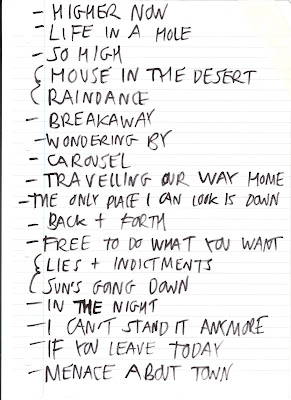 - HIGHER NOW
- LIFE IN A HOLE
- SO HIGH
{ MOUSE IN THE DESERT
{ RAINDANCE
- BREAKAWAY
- WONDERING BY
- CAROUSEL
- TRAVELLING OUR WAY HOME
- THE ONLY PLACE I CAN LOOK IS DOWN
- BACK + FORTH
- FREE TO DO WHAT YOU WANT
{ LIES + INDICTMENTS
{ SUN'S GOING DOWN
- IN THE NIGHT
- I CAN'T STAND IT ANYMORE
- IF YOU LEAVE TODAY
- MENACE ABOUT TOWN